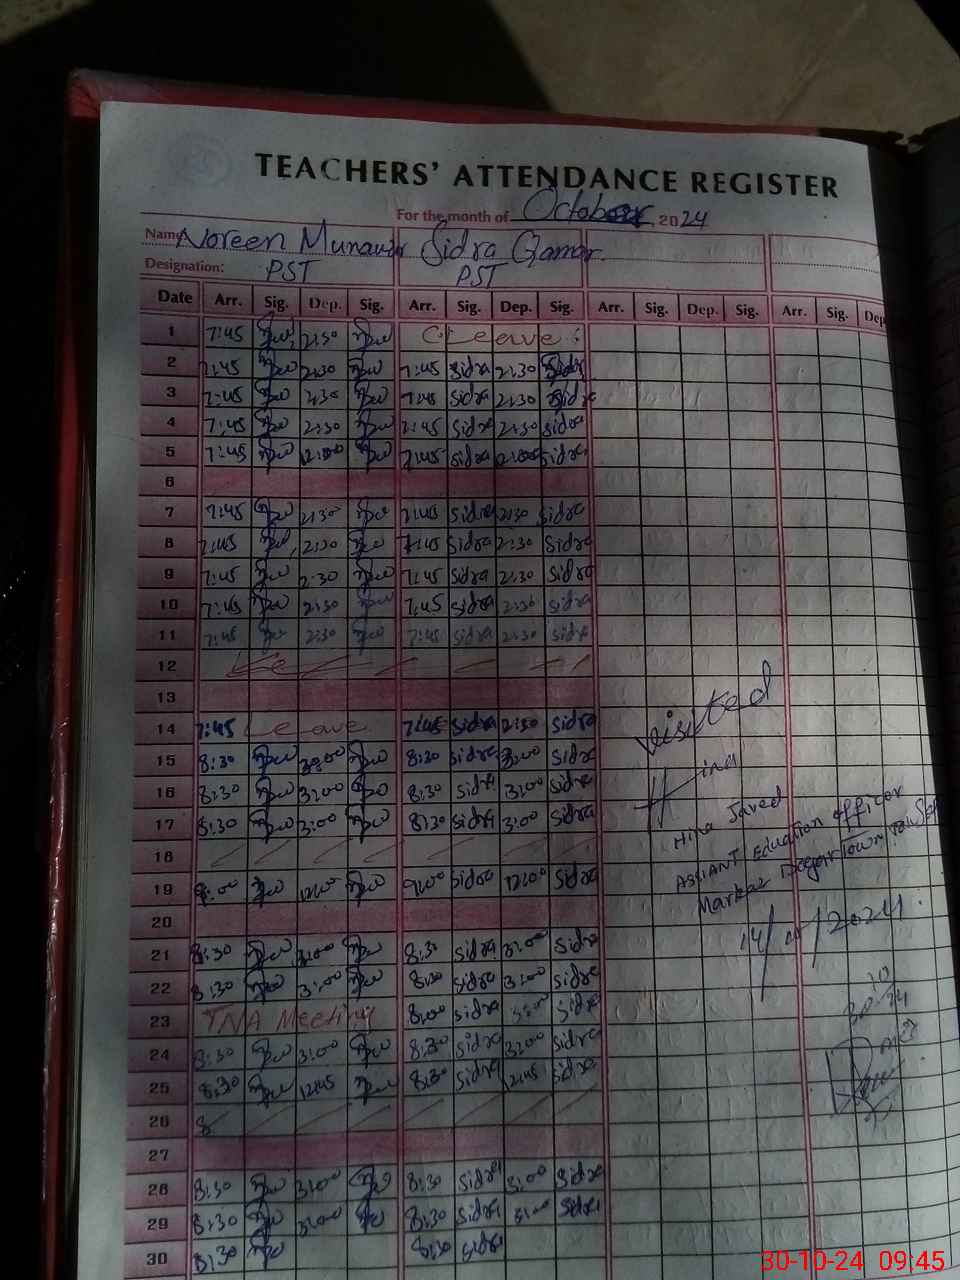 TEACHERS' ATTENDANCE REGISTER
For the month of October 2024
Name Noreen Munawar Sidra Qamar.
Designation: PST PST
Date Arr. Sig. Dep. Sig. Arr. Sig. Dep. Sig. Arr. Sig. Dep. Sig. Arr. Sig. Dep
1 7:45 2:30 C Leave
2 7:45 2:30 7:45 Sidra 2:30 Sidra
3 7:45 2:30 7:45 Sidra 2:30 Sidra
4 7:45 2:30 7:45 Sidra 2:30 Sidra
5 7:45 7:45 Sidra Sidra
6
7 7:45 2:30 7:45 Sidra 2:30 Sidra
8 7:45 2:30 7:45 Sidra 2:30 Sidra
9 7:45 2:30 7:45 Sidra 2:30 Sidra
10 7:45 2:30 7:45 Sidra 2:30 Sidra
11 7:45 2:30 7:45 Sidra 2:30 Sidra
12
13
14 7:45 Leave 7:45 Sidra 2:30 Sidra
15 8:30 3:00 8:30 Sidra 3:00 Sidra
16 8:30 3:00 8:30 Sidra 3:00 Sidra
17 8:30 3:00 8:30 Sidra 3:00 Sidra
18
19 12:00 9:00 Sidra 12:00 Sidra
20
21 8:30 3:00 8:30 Sidra 3:00 Sidra
22 8:30 3:00 8:30 Sidra 3:00 Sidra
23 TNA Meeting 8:00 Sidra Sidra
24 8:30 3:00 8:30 Sidra 3:00 Sidra
25 8:30 12:45 8:30 Sidra 12:45 Sidra
26 8
27
28 8:30 3:00 8:30 Sidra 3:00 Sidra
29 8:30 3:00 8:30 Sidra 3:00 Sidra
30 8:30 8:30 Sidra
visited
Hina
Hina Javed
Markaz
2024.
30-10-24 09:45